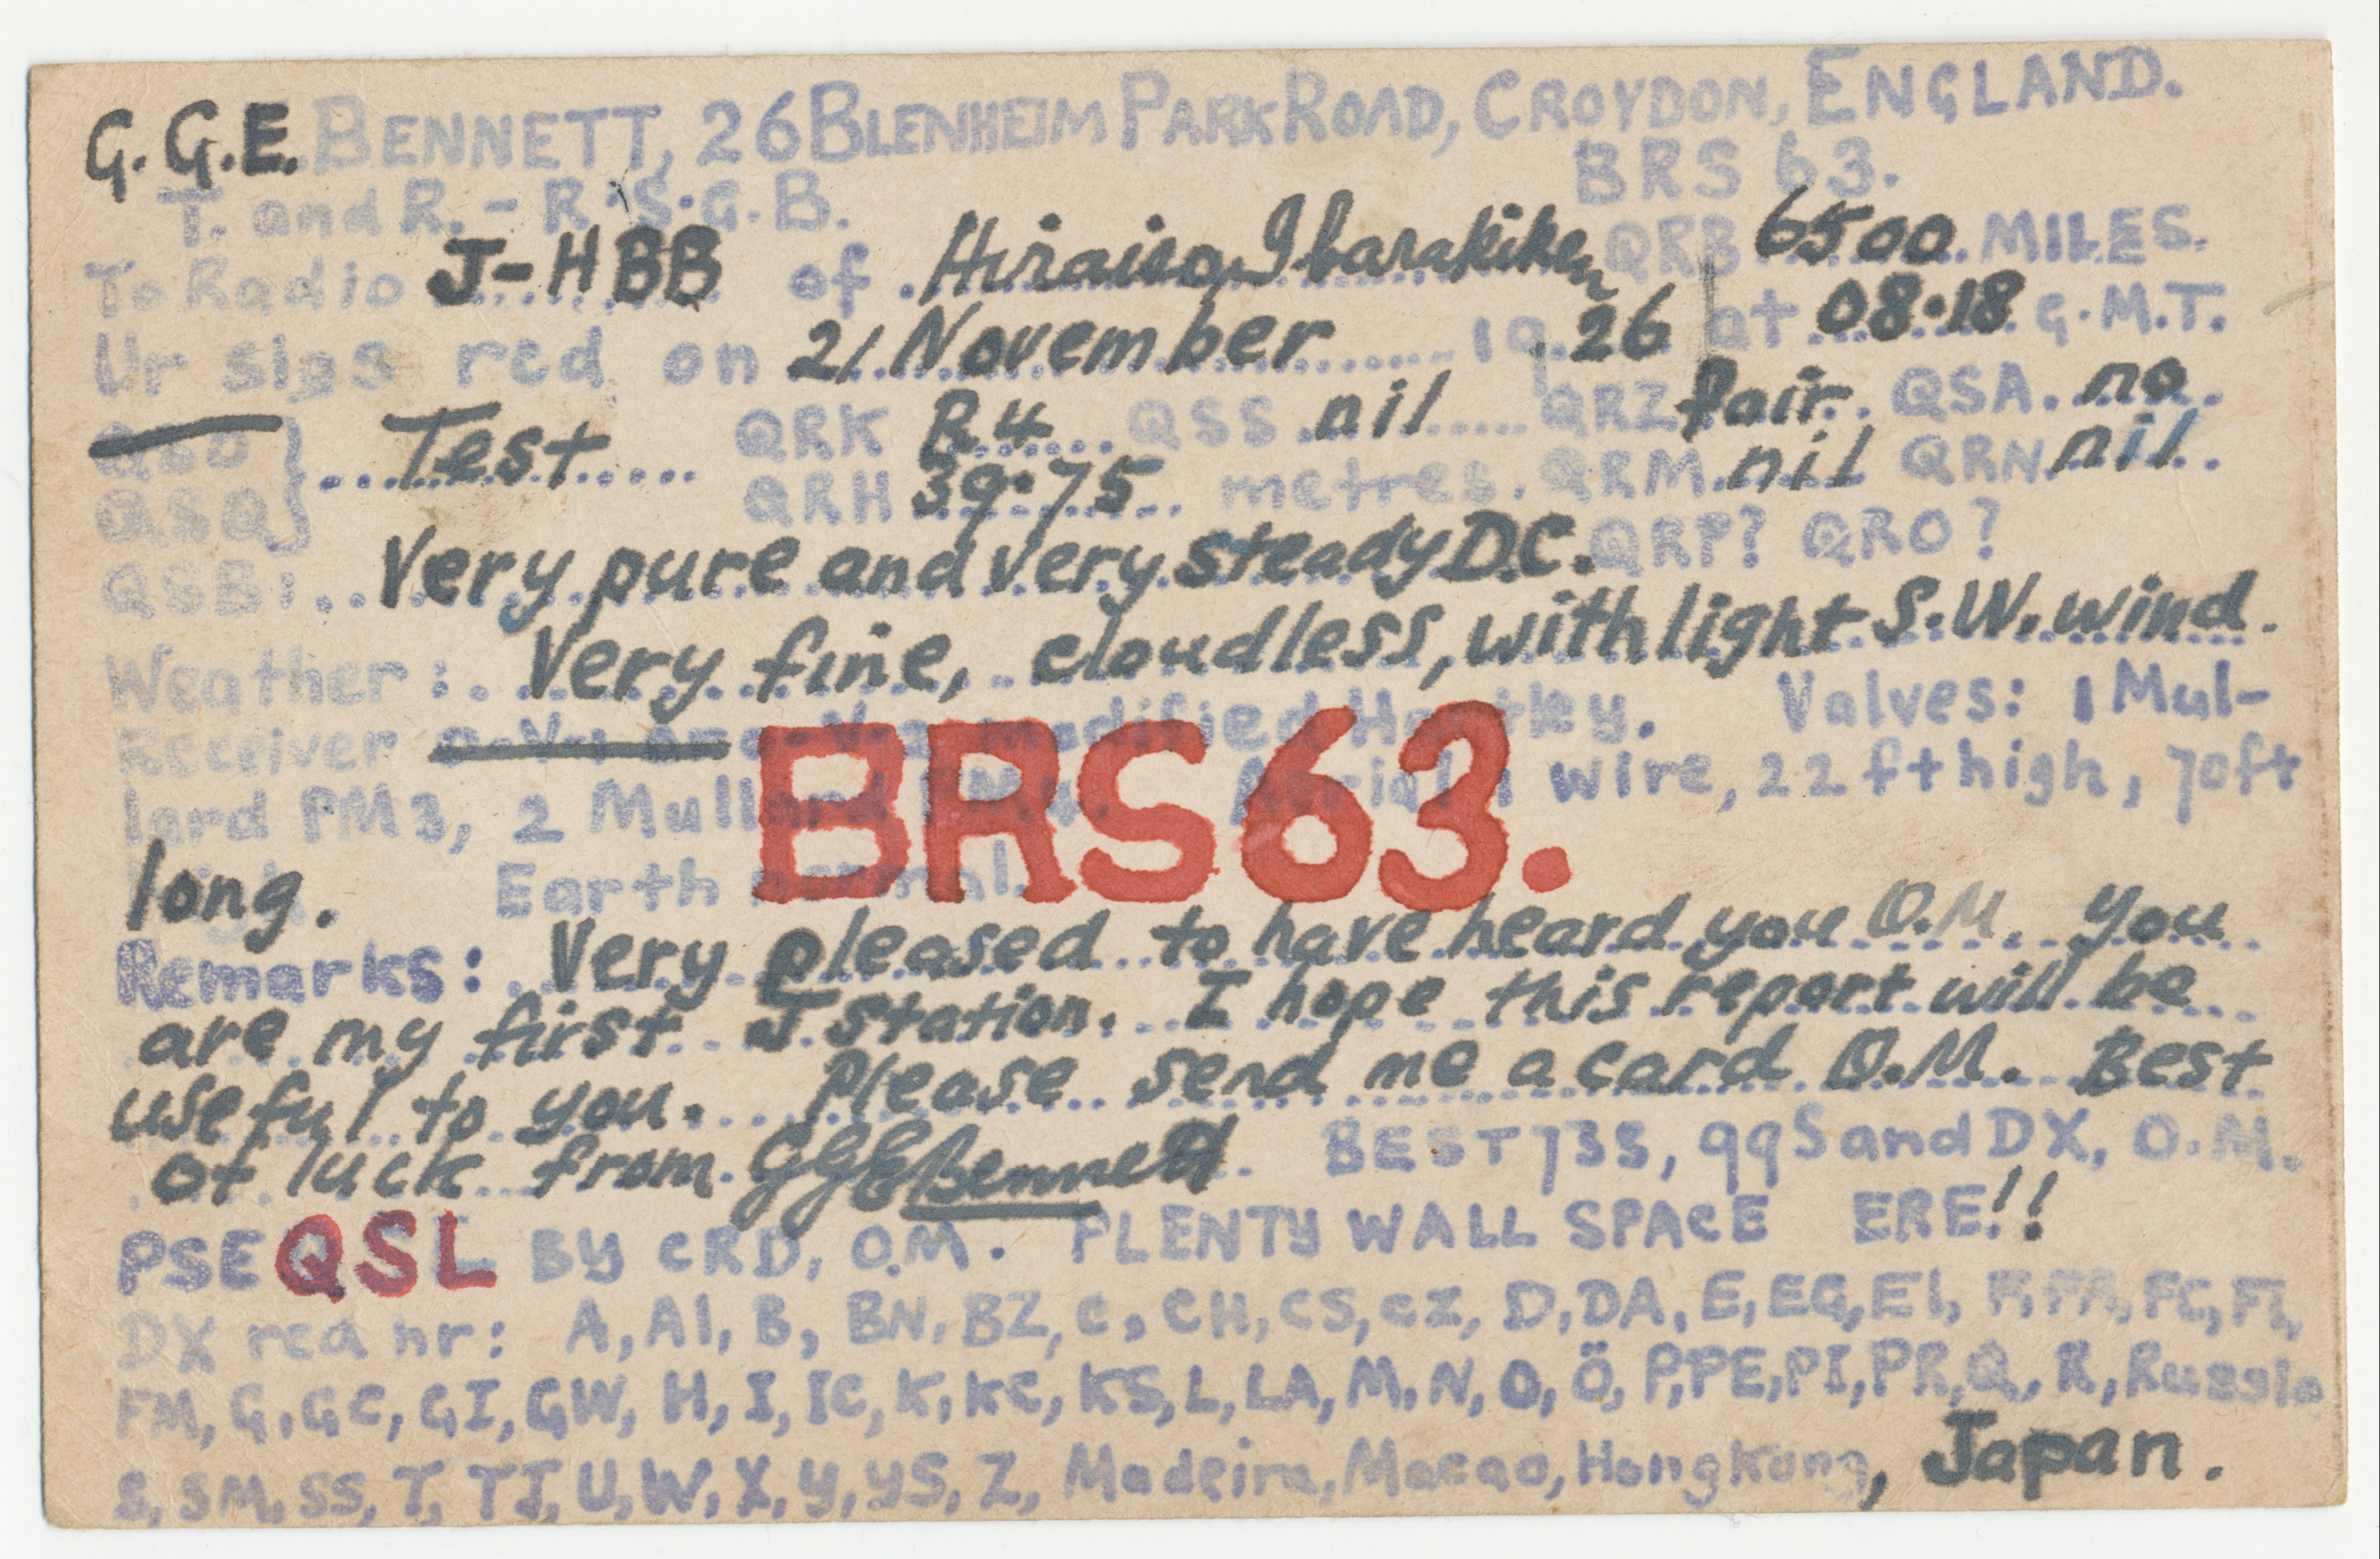 G. G.E. BENNETT, 26 BLENHEIM PARK ROAD, CROYDON, ENGLAND.
T. and R. - R.S.G.B. BRS 63.
To Radio J-HBB of Hiraiso, Ibarakiken QRB 6500 MILES.
Ur sigs red on 21 November 1926 at 08.18 G.M.T.
QSO Test QRK R4 QSS nil QRZ fair QSA no
QSQ QRH 39.75 metres. QRM nil QRN nil
QSB: Very pure and very steady D.C. QRP? QRO?
Weather: Very fine, cloudless, with light S.W. wind.
Receiver modified Hartley. Valves: 1 Mul-
lard PM3, 2 Mullard Aerial 1 wire, 22 ft high, 70ft
BRS 63.
long. Earth normal.
Remarks: Very pleased to have heard you O.M. You
are my first J station. I hope this report will be
useful to you. Please send me a card O.M. Best
of luck from GGE Bennett BEST 73s, 99s and DX, O.M.
PSE QSL BY CRD, O.M. PLENTY WALL SPACE ERE!!
DX red nr: A, AI, B, BN, BZ, C, CH, CS, CZ, D, DA, E, EG, EI, F, FA, FC, FI,
FM, G, GC, GI, GW, H, I, IC, K, KC, KS, L, LA, M, N, O, Ö, P, PE, PI, PR, Q, R, Russia
S, SM, SS, T, TJ, U, W, X, Y, YS, Z, Madeira, Macao, Hong Kong, Japan.